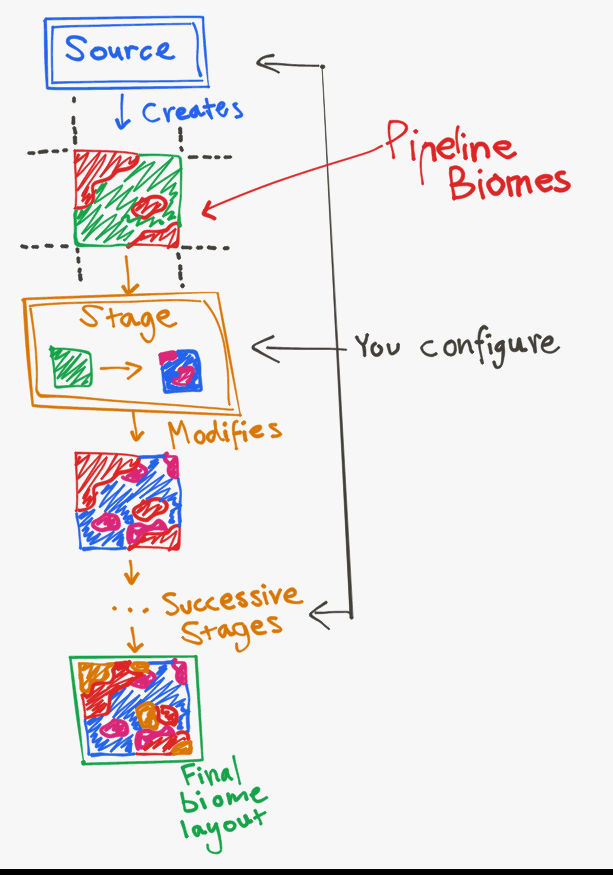 Source
Creates
Pipeline
Biomes
Stage
You configure
Modifies
... Successive
Stages
Final
biome
layout